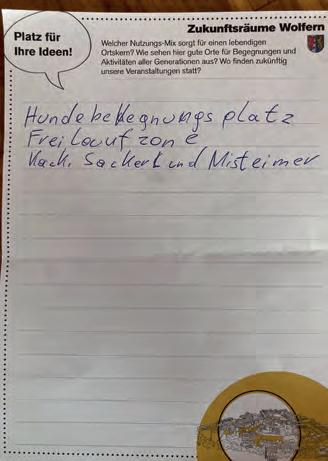 Platz für
Ihre Ideen!
Zukunftsräume Wolfern
Welcher Nutzungs-Mix sorgt für einen lebendigen
Ortskern? Wie sehen hier gute Orte für Begegnungen und
Aktivitäten aller Generationen aus? Wo finden zukünftig
unsere Veranstaltungen statt?
Hundebekegnungsplatz
Freilaufzone
Sackerl und Misteimer